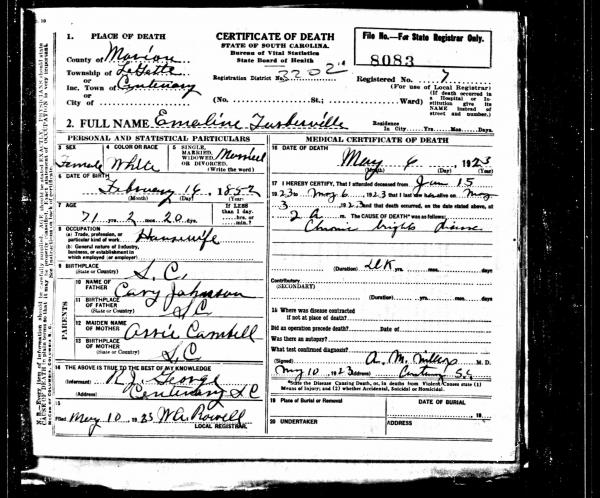 1. PLACE OF DEATH
County of Marion
Township of LeGette
or
Inc. Town of Centenary
or
City of
CERTIFICATE OF DEATH
STATE OF SOUTH CAROLINA.
Bureau of Vital Statistics
State Board of Health
Registration District No. 3202
(No. St.; Ward)
File No.—For State Registrar Only.
8083
Registered No. 7
(For use of Local Registrar)
(If death occurred in a Hospital or Institution give its NAME instead of street and number.)
2. FULL NAME Emeline
Residence In City Yrs. Mos. Days.
PERSONAL AND STATISTICAL PARTICULARS
3 SEX
Female
4 COLOR OR RACE
White
5 SINGLE, MARRIED, WIDOWED OR DIVORCED.
Married
(Write the word)
6 DATE OF BIRTH
February 16, 1852
(Month) (Day) (Year)
7 AGE
71 yrs. 2 mos. 20 ds.
If LESS than 1 day, hrs. or min.?
8 OCCUPATION
(a) Trade, profession, or particular kind of work
Housewife
(b) General nature of Industry, business, or establishment in which employed (or employer)
9 BIRTHPLACE
(State or Country)
S. C.
PARENTS
10 NAME OF FATHER
Cary Johnson
11 BIRTHPLACE OF FATHER
(State or Country)
S C
12 MAIDEN NAME OF MOTHER
13 BIRTHPLACE OF MOTHER
(State or Country)
S. C
14 THE ABOVE IS TRUE TO THE BEST OF MY KNOWLEDGE
(Informant) George
(Address) Centenary S C
15
Filed May 10, 1923 W.A. Rowell
LOCAL REGISTRAR.
MEDICAL CERTIFICATE OF DEATH
16 DATE OF DEATH
May 6, 1923
(Month) (Day) (Year)
17 I HEREBY CERTIFY, That I attended deceased from Jan 15
1923 to May 6, 1923 that I last saw h alive on May
3, 1923 and that death occurred, on the date stated above, at
2 a m. The CAUSE OF DEATH* was as follows:
Chronic brights disease
(Duration) yrs. mos. days
Contributory
(SECONDARY)
(Duration) yrs. mos. days
18 Where was disease contracted
if not at place of death?
Did an operation precede death? Date of
Was there an autopsy?
What test confirmed diagnosis?
(Signed) A. M. M. D.
May 10, 1923 (Address) Centenary S.C.
*State the Disease Causing Death, or, in deaths from Violent Causes state (1) Means of Injury; and (2) whether Accidental, Suicidal or Homicidal.
19 Place of Burial or Removal
DATE OF BURIAL
, 19
20 UNDERTAKER
ADDRESS